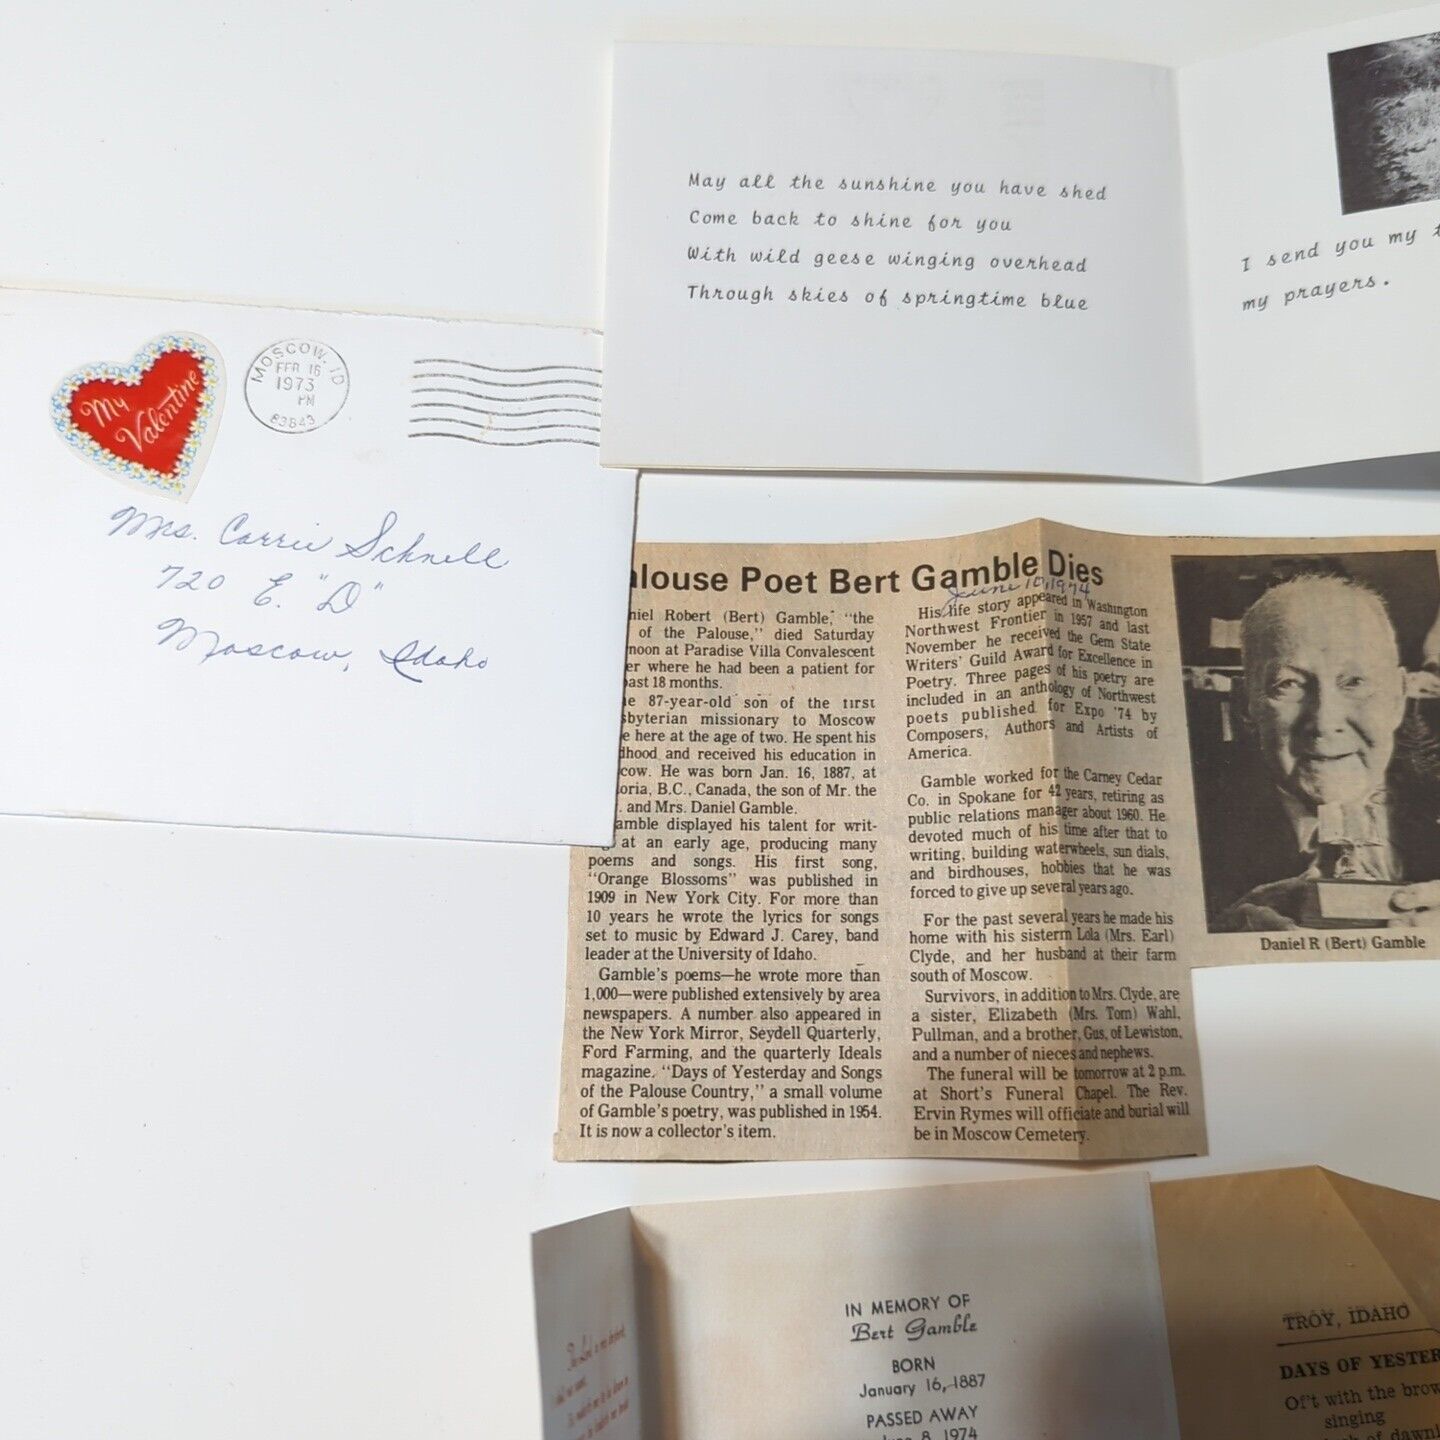 May all the sunshine you have shed
Come back to shine for you
With wild geese winging overhead
Through skies of springtime blue
I send you my
my prayers.
My
Valentine
MOSCOW, ID
FEB 16
1973
PM
83843
Mrs. Carrie Schnell
720 E. "D"
Moscow, Idaho
alouse Poet Bert Gamble Dies
June 10, 1974
niel Robert (Bert) Gamble, "the
of the Palouse," died Saturday
noon at Paradise Villa Convalescent
er where he had been a patient for
ast 18 months.
e 87-year-old son of the first
sbyterian missionary to Moscow
e here at the age of two. He spent his
dhood and received his education in
cow. He was born Jan. 16, 1887, at
oria, B.C., Canada, the son of Mr. the
. and Mrs. Daniel Gamble.
amble displayed his talent for writ-
at an early age, producing many
poems and songs. His first song,
"Orange Blossoms" was published in
1909 in New York City. For more than
10 years he wrote the lyrics for songs
set to music by Edward J. Carey, band
leader at the University of Idaho.
Gamble's poems—he wrote more than
1,000—were published extensively by area
newspapers. A number also appeared in
the New York Mirror, Seydell Quarterly,
Ford Farming, and the quarterly Ideals
magazine. "Days of Yesterday and Songs
of the Palouse Country," a small volume
of Gamble's poetry, was published in 1954.
It is now a collector's item.
His life story appeared in Washington
Northwest Frontier in 1957 and last
November he received the Gem State
Writers' Guild Award for Excellence in
Poetry. Three pages of his poetry are
included in an anthology of Northwest
poets published for Expo '74 by
Composers, Authors and Artists of
America.
Gamble worked for the Carney Cedar
Co. in Spokane for 42 years, retiring as
public relations manager about 1960. He
devoted much of his time after that to
writing, building waterwheels, sun dials,
and birdhouses, hobbies that he was
forced to give up several years ago.
For the past several years he made his
home with his sisterm Lola (Mrs. Earl)
Clyde, and her husband at their farm
south of Moscow.
Survivors, in addition to Mrs. Clyde, are
a sister, Elizabeth (Mrs. Tom) Wahl,
Pullman, and a brother, Gus, of Lewiston,
and a number of nieces and nephews.
The funeral will be tomorrow at 2 p.m.
at Short's Funeral Chapel. The Rev.
Ervin Rymes will officiate and burial will
be in Moscow Cemetery.
Daniel R (Bert) Gamble
IN MEMORY OF
Bert Gamble
BORN
January 16, 1887
PASSED AWAY
June 8, 1974
TROY, IDAHO
DAYS OF YESTER
Of't with the brow
singing
of dawnl